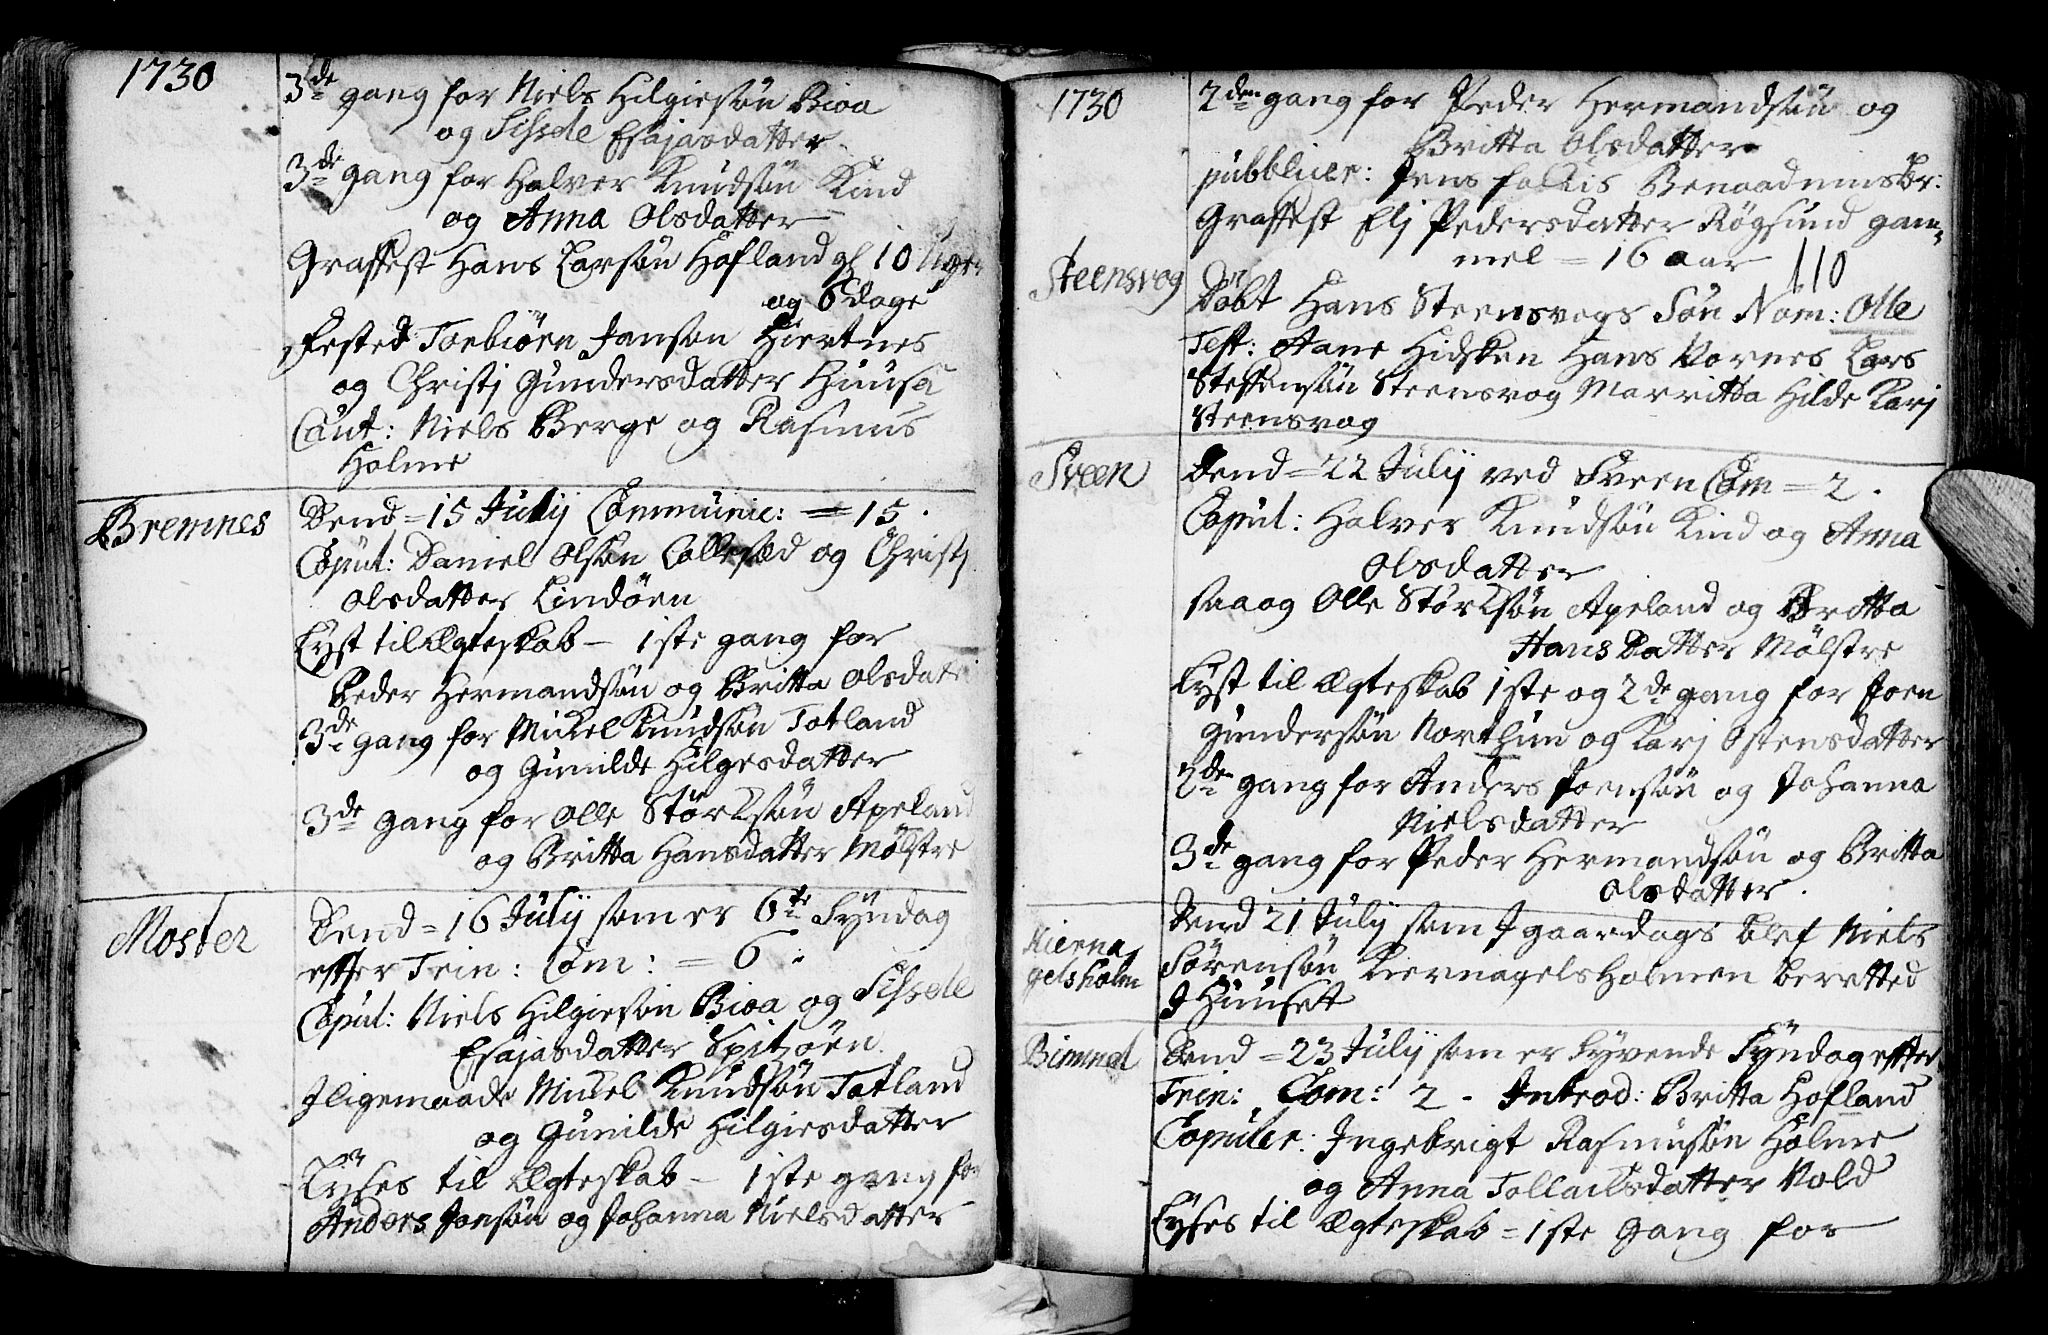 1730
3de gang for Niels Hilgiesøn Bioa
og Sissele Esajasdatter.
3de gang for Halver Knudsøn Kind
og Anna Olsdatter
Graffest Hans Larsøn Hofland gl 10 Uger
og 6 dage
Fested Torbiørn Jansøn Hiertnes
og Christj Gundersdatter Huuså
Caut: Niels Berge og Rasmus
Holme
Bremnes
Dend = 15 Julij Communic: = 15.
Copul: Daniel Olsøn og Christj
Olsdatter Lindøen
Lyst til Ægteskab – 1ste gang for
Peder Hermandsøn og Britta Olsdat
3de gang for Mickel Knudsøn Totland
og Gunilde Hilgesdatter
3de gang for Olle Størcksøn Apeland
og Britta Hansdatter Mølstre
Moster
Dend = 16 Julij som er 6te Syndag
effter Trin: Com: = 6.
Copul: Niels Hilgiesøn Bioa og Sissele
Esajasdatter Spitzøen.
Iligemaade Mickel Knudsøn Totland
og Gunilde Hilgiesdatter
Lyses til Ægteskab – 1ste gang for
Anders Jonsøn og Johanna Nielsdatter
1730
2den gang for Peder Hermandsøn og
Britta Olsdatter
publicer: Jens Falkis Benaadningsbr:
Graffest Elj Pedersdatter Røgsund gam-
mel = 16 aar 110
Steensvog
Døbt Hans Steensvogs Søn Nom: Olle
Test: Aane Hidsken Hans Vornes Lars
Steffensøn Steensvog Marritta Hilde Karj
Steensvog
Sveen
Dend = 22 Julij ved Sveen Com = 2.
Copul: Halver Knudsøn Kind og Anna
Olsdatter
saa og Olle Størcksøn Apeland og Britta
Hans Datter Mølstre
Lyst til Ægteskab 1ste og 2de gang for Joen
Gundersøn Northun og Karj Ostensdatter
2den gang for Anders Joensøn og Johanna
Nielsdatter
3de gang for Peder Hermandsøn og Britta
Olsdatter.
Kierna
gelsholm
Dend 21 Julij som I gaardags blef Niels
Sørensøn Kiernagelsholmen beretted
I Huuset
Bimmel
Dend = 23 Julij som er Syvende Syndag effter
Trin: Com: 2 - Introd: Britta Hofland
Copuler: Ingebrigt Rasmusøn Holme
og Anna Tollachsdatter Vold
Lyses til Ægteskab = 1ste Gang for